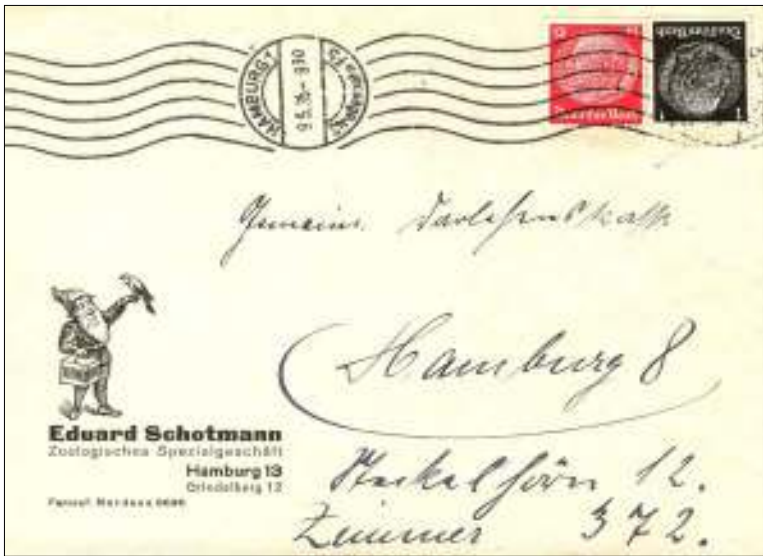 HAMBURG 1
9.5.36-9 30
Gemeins. Darlehenskasse
Hamburg 8
Steckelhörn 12.
Zimmer 372.
Eduard Schotmann
Zoologisches Spezialgeschäft
Hamburg 13
Grindelberg 12
Fernruf: Nordsee